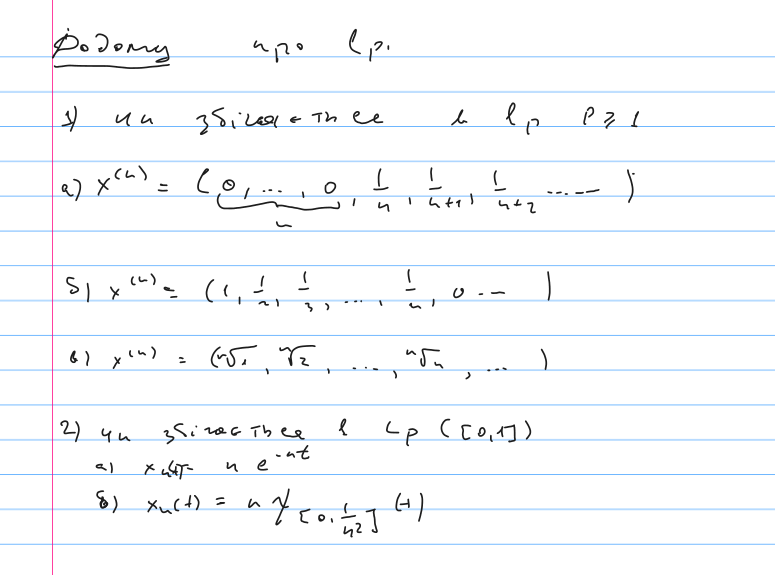 Додому про lp.
1) чи збігається в lp p ⩾ 1
а) x^(n) = (0, ..., 0, 1/n, 1/n+1, 1/n+2 ...... )
n
б) x^(n) = (1, 1/2, 1/3, ..., 1/n, 0 ... )
в) x^(n) = (ⁿ√1, ⁿ√2, ..., ⁿ√n, ... )
2) чи збігається в Lp ([0,1])
а) xn(t) = n e^-nt
б) xn(t) = n χ[0, 1/n²] (t)